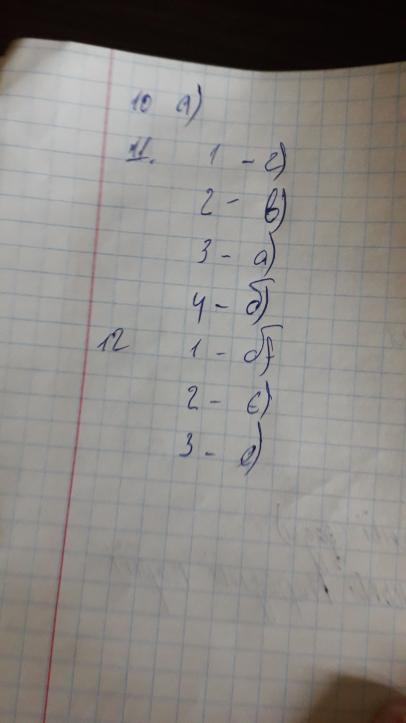 10 а)
11. 1 - г)
2 - в)
3 - а)
4 - б)
12 1 - б)
2 - є)
3 - е)